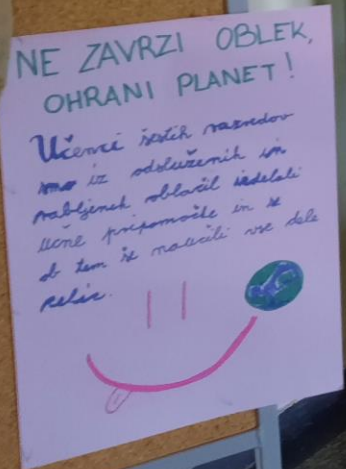 NE ZAVRZI OBLEK,
OHRANI PLANET!
Učenci šestih razredov
smo iz odsluženih in
rabljenih oblačil izdelali
učne pripomočke in se
ob tem še naučili vse dele
celic.